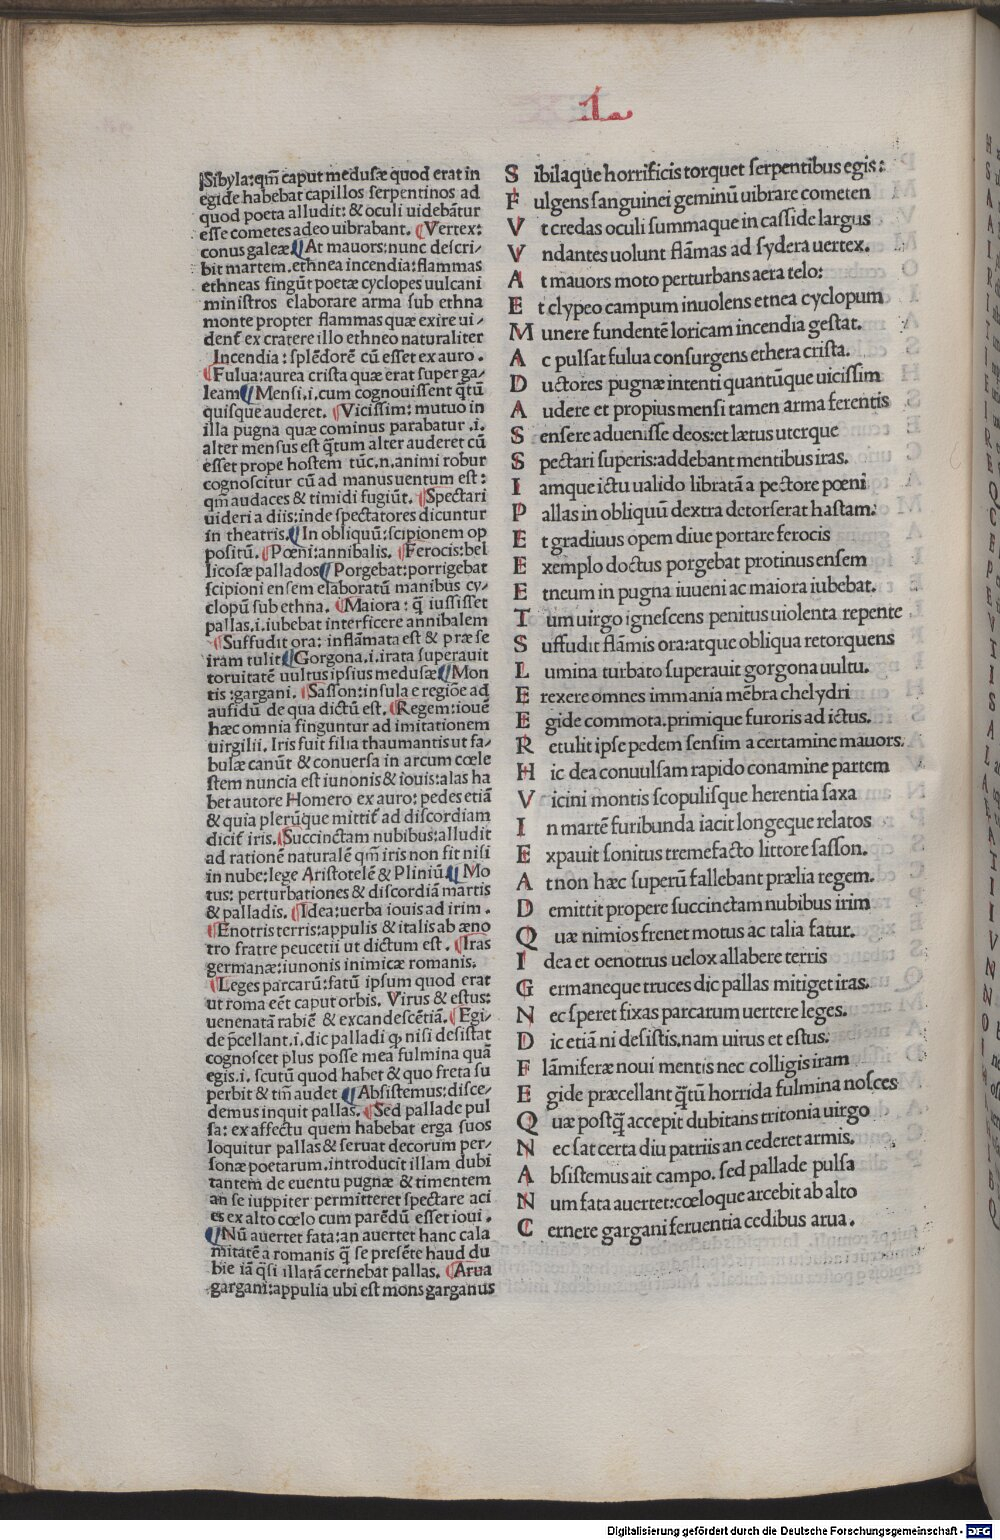 L
Sibyla:qm̄ caput medusæ quod erat in
egide habebat capillos serpentinos ad
quod poeta alludit: & oculi uidebātur
esse cometes adeo uibrabant. ¶Vertex:
conus galeæ¶At mauors:nunc descri/
bit martem.ethnea incendia:flammas
ethneas fingūt poetæ cyclopes uulcani
ministros elaborare arma sub ethna
monte propter flammas quæ exire ui/
denť ex cratere illo ethneo naturaliter
Incendia: splēdorē cū esset ex auro.
¶Fulua:aurea crista quæ erat super ga/
leam¶Mensi.i.cum cognouissent q̄tū
quisque auderet. ¶Vicissim: mutuo in
illa pugna quæ cominus parabatur .i.
alter mensus est q̄tum alter auderet cū
esset prope hostem tūc.n.animi robur
cognoscitur cū ad manus uentum est:
qm̄ audaces & timidi fugiūt. ¶Spectari
uideri a diis:inde spectatores dicuntur
in theatris.¶In obliquū:scipionem op
positū.¶Pœni:annibalis. ¶Ferocis:bel
licosæ pallados¶Porgebat:porrigebat
scipioni ensem elaboratū manibus cy/
clopū sub ethna. ¶Maiora: q̄ iussisset
pallas.i.iubebat interficere annibalem
¶Suffudit ora: inflāmata est & præ se
iram tulit¶Gorgona.i.irata superauit
toruitatē uultus ipsius medusæ¶Mon
tis :gargani. ¶Sasson:insula e regiōe ad
aufidū de qua dictū est. ¶Regem:iouē
hæc omnia finguntur ad imitationem
uirgilii. Iris fuit filia thaumantis ut fa/
bulæ canūt & conuersa in arcum cœle
stem nuncia est iunonis & iouis:alas ha
bet autore Homero ex auro: pedes etiā
& quia plerūque mittiť ad discordiam
diciť iris.¶Succinctam nubibus:alludit
ad rationē naturalē qm̄ iris non fit nisi
in nube:lege Aristotelē & Pliniū.¶Mo
tus: perturbationes & discordiā martis
& palladis. ¶Idea:uerba iouis ad irim .
¶Enotris terris:appulis & italis ab œno
tro fratre peucetii ut dictum est . ¶Iras
germanæ:iunonis inimicæ romanis.
¶Leges parcarū:fatū ipsum quod erat
ut roma eēt caput orbis. Virus & estus:
uenenatā rabiē & excandescētiā.¶Egi/
de p̄cellant.i.dic palladi ꝙ nisi desistat
cognoscet plus posse mea fulmina quā
egis.i. scutū quod habet & quo freta su
perbit & tm̄ audet ¶Absistemus:disce/
demus inquit pallas. ¶Sed pallade pul
sa: ex affectu quem habebat erga suos
loquitur pallas & seruat decorum per/
sonæ poetarum.introducit illam dubi
tantem de euentu pugnæ & timentem
an se iuppiter permitteret spectare aci
es ex alto cœlo cum parēdū esset ioui .
¶Nū auertet fata:an auertet hanc cala
mitatē a romanis q̄ se presēte haud du
bie iā q̄si illatā cernebat pallas. ¶Arua
gargani:appulia ubi est mons garganus
S ibilaque horrificis torquet serpentibus egis:
F ulgens sanguinei geminū uibrare cometen
V t credas oculi summaque in casside largus
V ndantes uolunt flāmas ad sydera uertex.
A t mauors moto perturbans aera telo:
E t clypeo campum inuolens etnea cyclopum
M unere fundentē loricam incendia gestat.
A c pulsat fulua consurgens ethera crista.
D uctores pugnæ intenti quantūque uicissim
A udere et propius mensi tamen arma ferentis
S ensere aduenisse deos:et lætus uterque
S pectari superis:addebant mentibus iras.
I amque ictu ualido libratā a pectore pœni
P allas in obliquū dextra detorserat hastam:
E t gradiuus opem diue portare ferocis
E xemplo doctus porgebat protinus ensem
E tneum in pugna iuueni ac maiora iubebat.
T um uirgo ignescens penitus uiolenta repente
S uffudit flāmis ora:atque obliqua retorquens
L umina turbato superauit gorgona uultu.
E rexere omnes immania mēbra chelydri
E gide commota.primique furoris ad ictus.
R etulit ipse pedem sensim a certamine mauors.
H ic dea conuulsam rapido conamine partem
V icini montis scopulisque herentia saxa
I n martē furibunda iacit longeque relatos
E xpauit sonitus tremefacto littore sasson.
A t non hæc superū fallebant prælia regem.
D emittit propere succinctam nubibus irim
Q uæ nimios frenet motus ac talia fatur.
I dea et oenotrus uelox allabere terris
G ermaneque truces dic pallas mitiget iras.
N ec speret fixas parcarum uertere leges.
D ic etiā ni desistis.nam uirus et estus.
F lāmiferæ noui mentis nec colligis iram
E gide præcellant q̄tū horrida fulmina nosces
Q uæ postq̄ accepit dubitans tritonia uirgo
N ec sat certa diu patriis an cederet armis.
A bsistemus ait campo. sed pallade pulsa
N um fata auertet:cœloque arcebit ab alto
C ernere gargani feruentia cedibus arua .
Digitalisierung gefördert durch die Deutsche Forschungsgemeinschaft - DFG